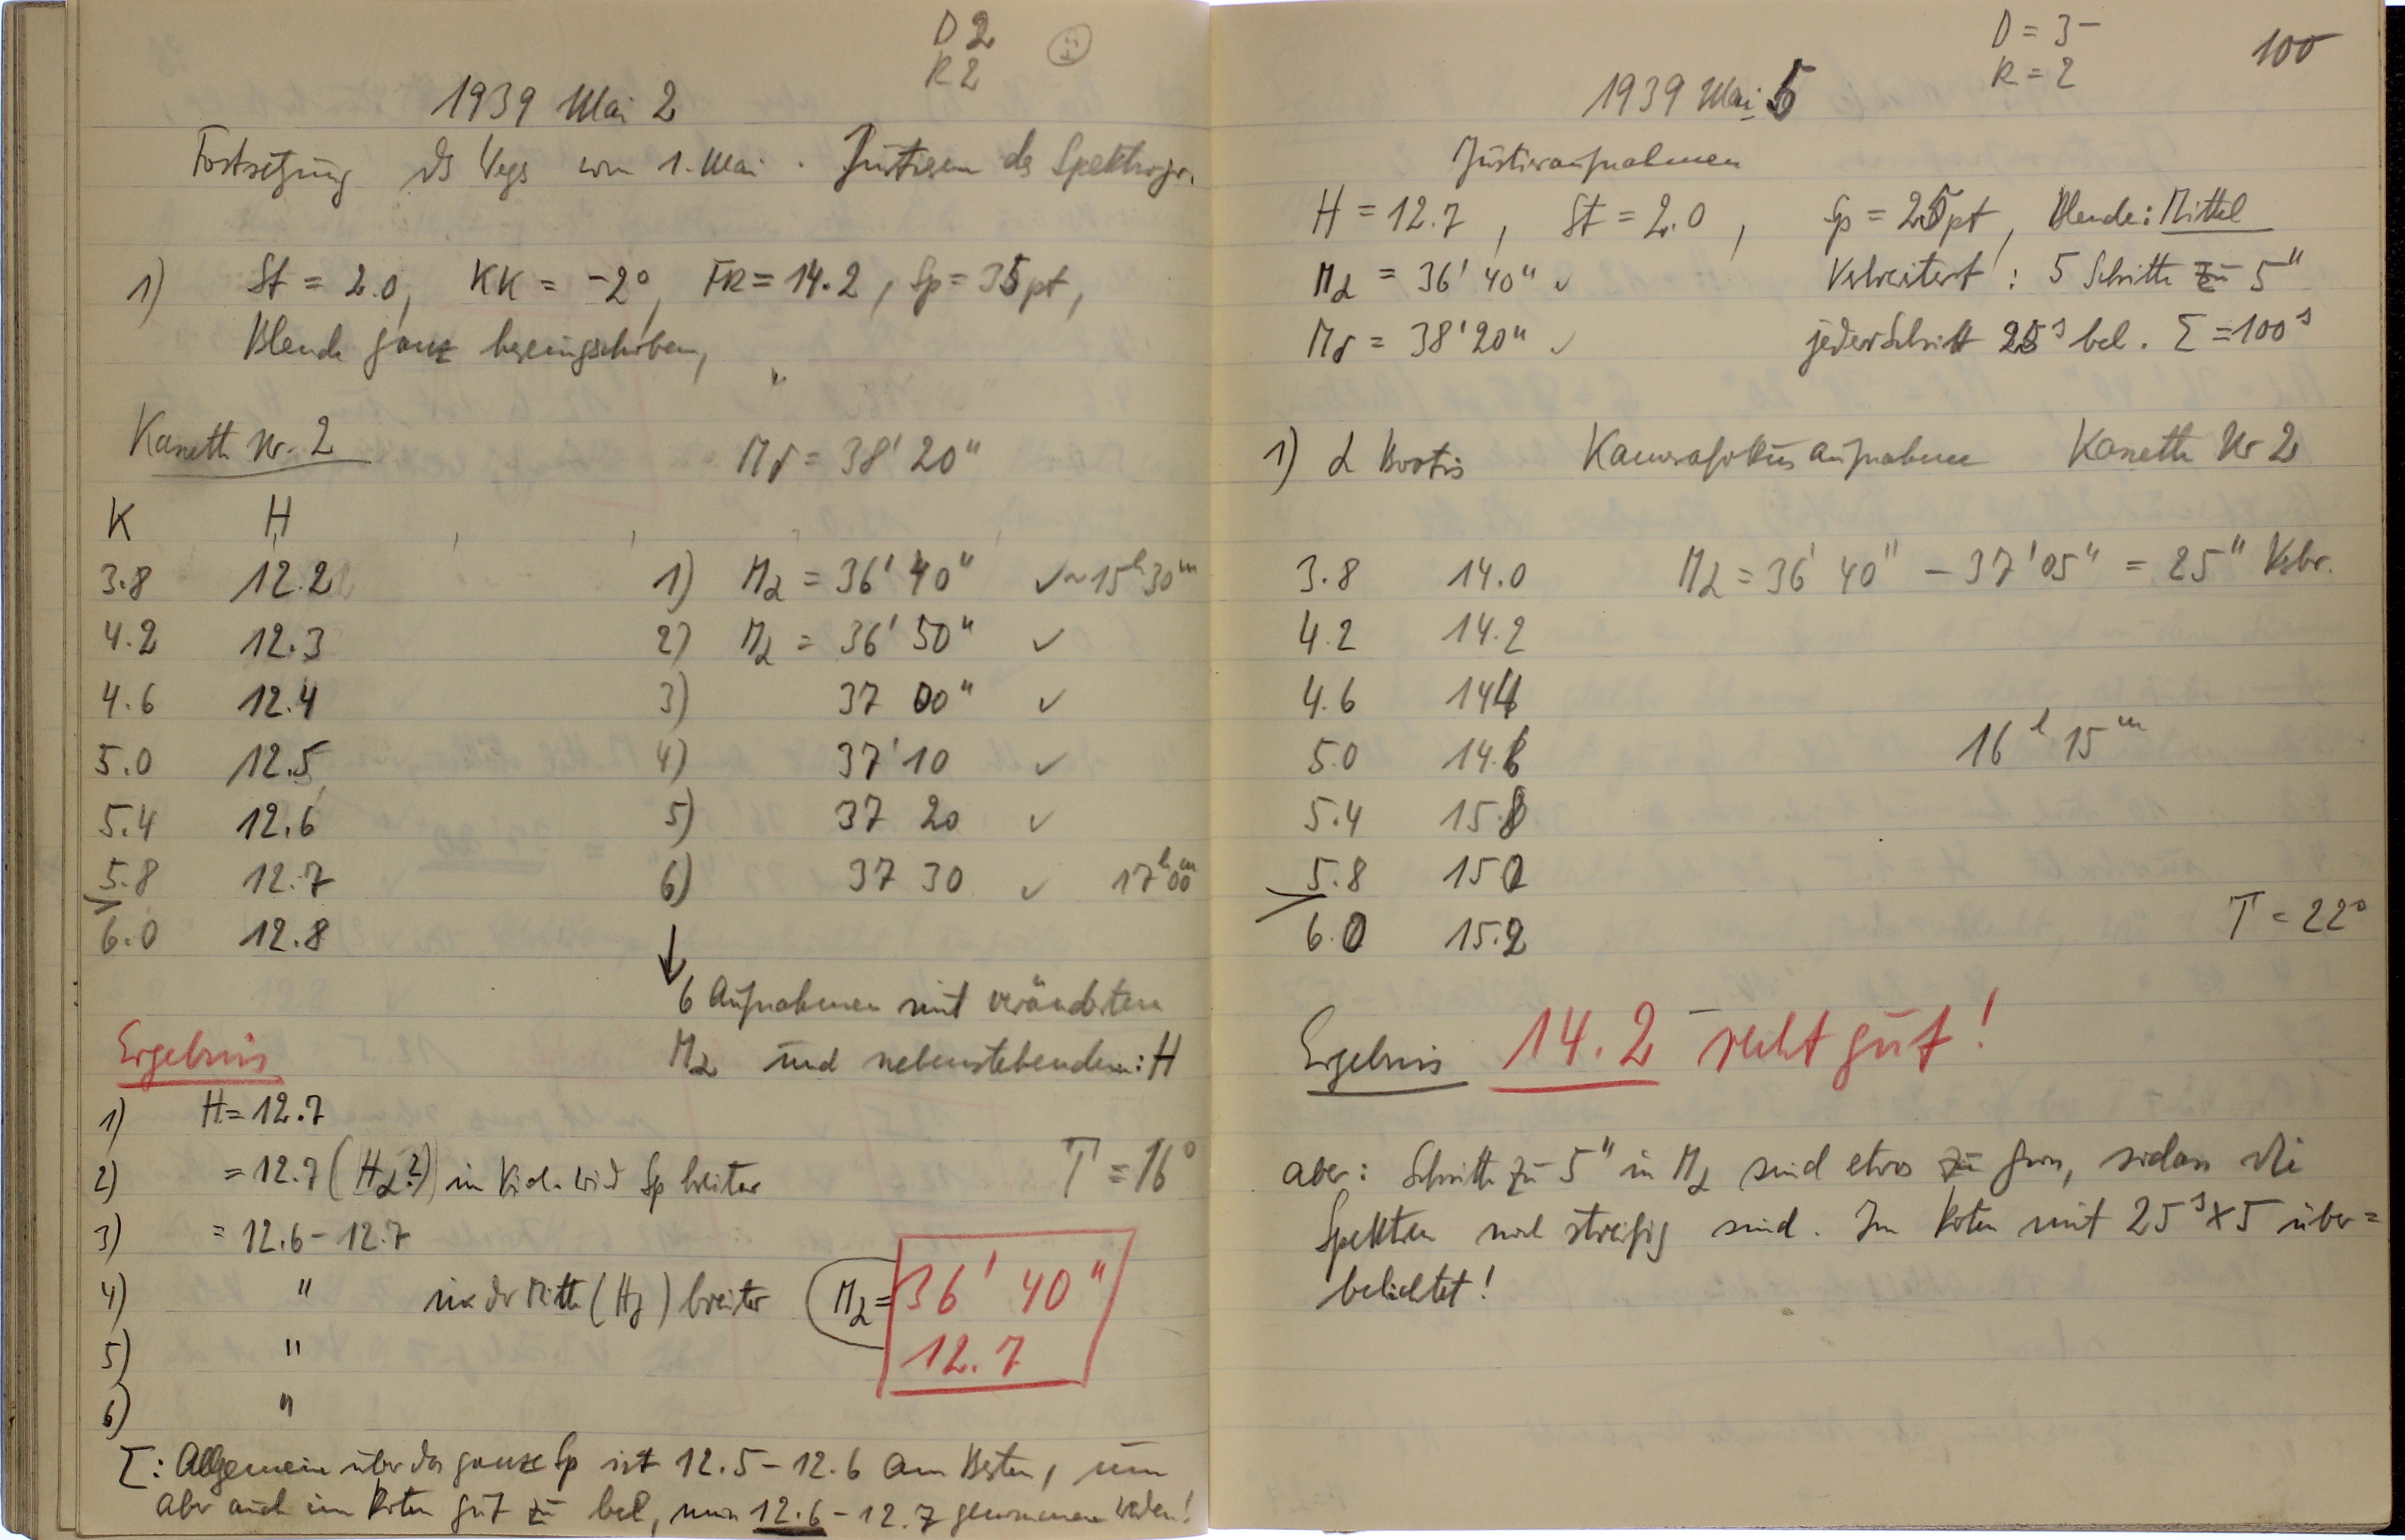 D 2
R 2
1939 Mai 2
Fortsetzung des Wegs vom 1. Mai. Justieren des Spektrogr.
1) St = 2.0, KK = -2°, FR = 14.2, Sp = 35 pt,
Blende ganz hereingeschoben,
Kasette Nr. 2 Mδ = 38' 20"
K H
3.8 12.2 1) Mα = 36' 40" ✓ ~ 15h 30m
4.2 12.3 2) Mα = 36' 50" ✓
4.6 12.4 3) 37 00" ✓
5.0 12.5 4) 37' 10 ✓
5.4 12.6 5) 37 20 ✓
5.8 12.7 6) 37 30 ✓ 17h 00m
6.0 12.8
↓
6 Aufnahmen mit veränderten
Mα und nebenstehendem: H
Ergebnis
1) H = 12.7
2) = 12.7 (Hα?) in Viol. wird Sp breiter
T = 16°
3) = 12.6 - 12.7
4) " in der Mitte (Hγ) breiter
Mα = 36' 40"
12.7
5) "
6) "
Σ: Allgemein über das ganze Sp ist 12.5 - 12.6 am Besten, um
aber auch im Roten gut zu bel, muss 12.6 - 12.7 genommen werden!
D = 3-
R = 2
100
1939 Mai 5
Justieraufnahmen
H = 12.7, St = 2.0, Sp = 25 pt, Blende: Mittel
Mα = 36' 40" ✓ Verbreitert: 5 Schritte zu 5"
Mδ = 38' 20" ✓ jeder Schritt 25s bel. Σ = 100s
1) α Bootis Kamerafokusaufnahme Kasette Nr 2
3.8 14.0 Mα = 36' 40" - 37' 05" = 25" Verbr.
4.2 14.2
4.6 14.4
16h 15m
5.0 14.6
5.4 15.8
5.8 15.0
T = 22°
6.0 15.2
Ergebnis 14.2 recht gut!
aber: Schritte zu 5" in Mα sind etwas zu gross, sodass die
Spektren noch streifig sind. Im Roten mit 25s x 5 über=
belichtet!